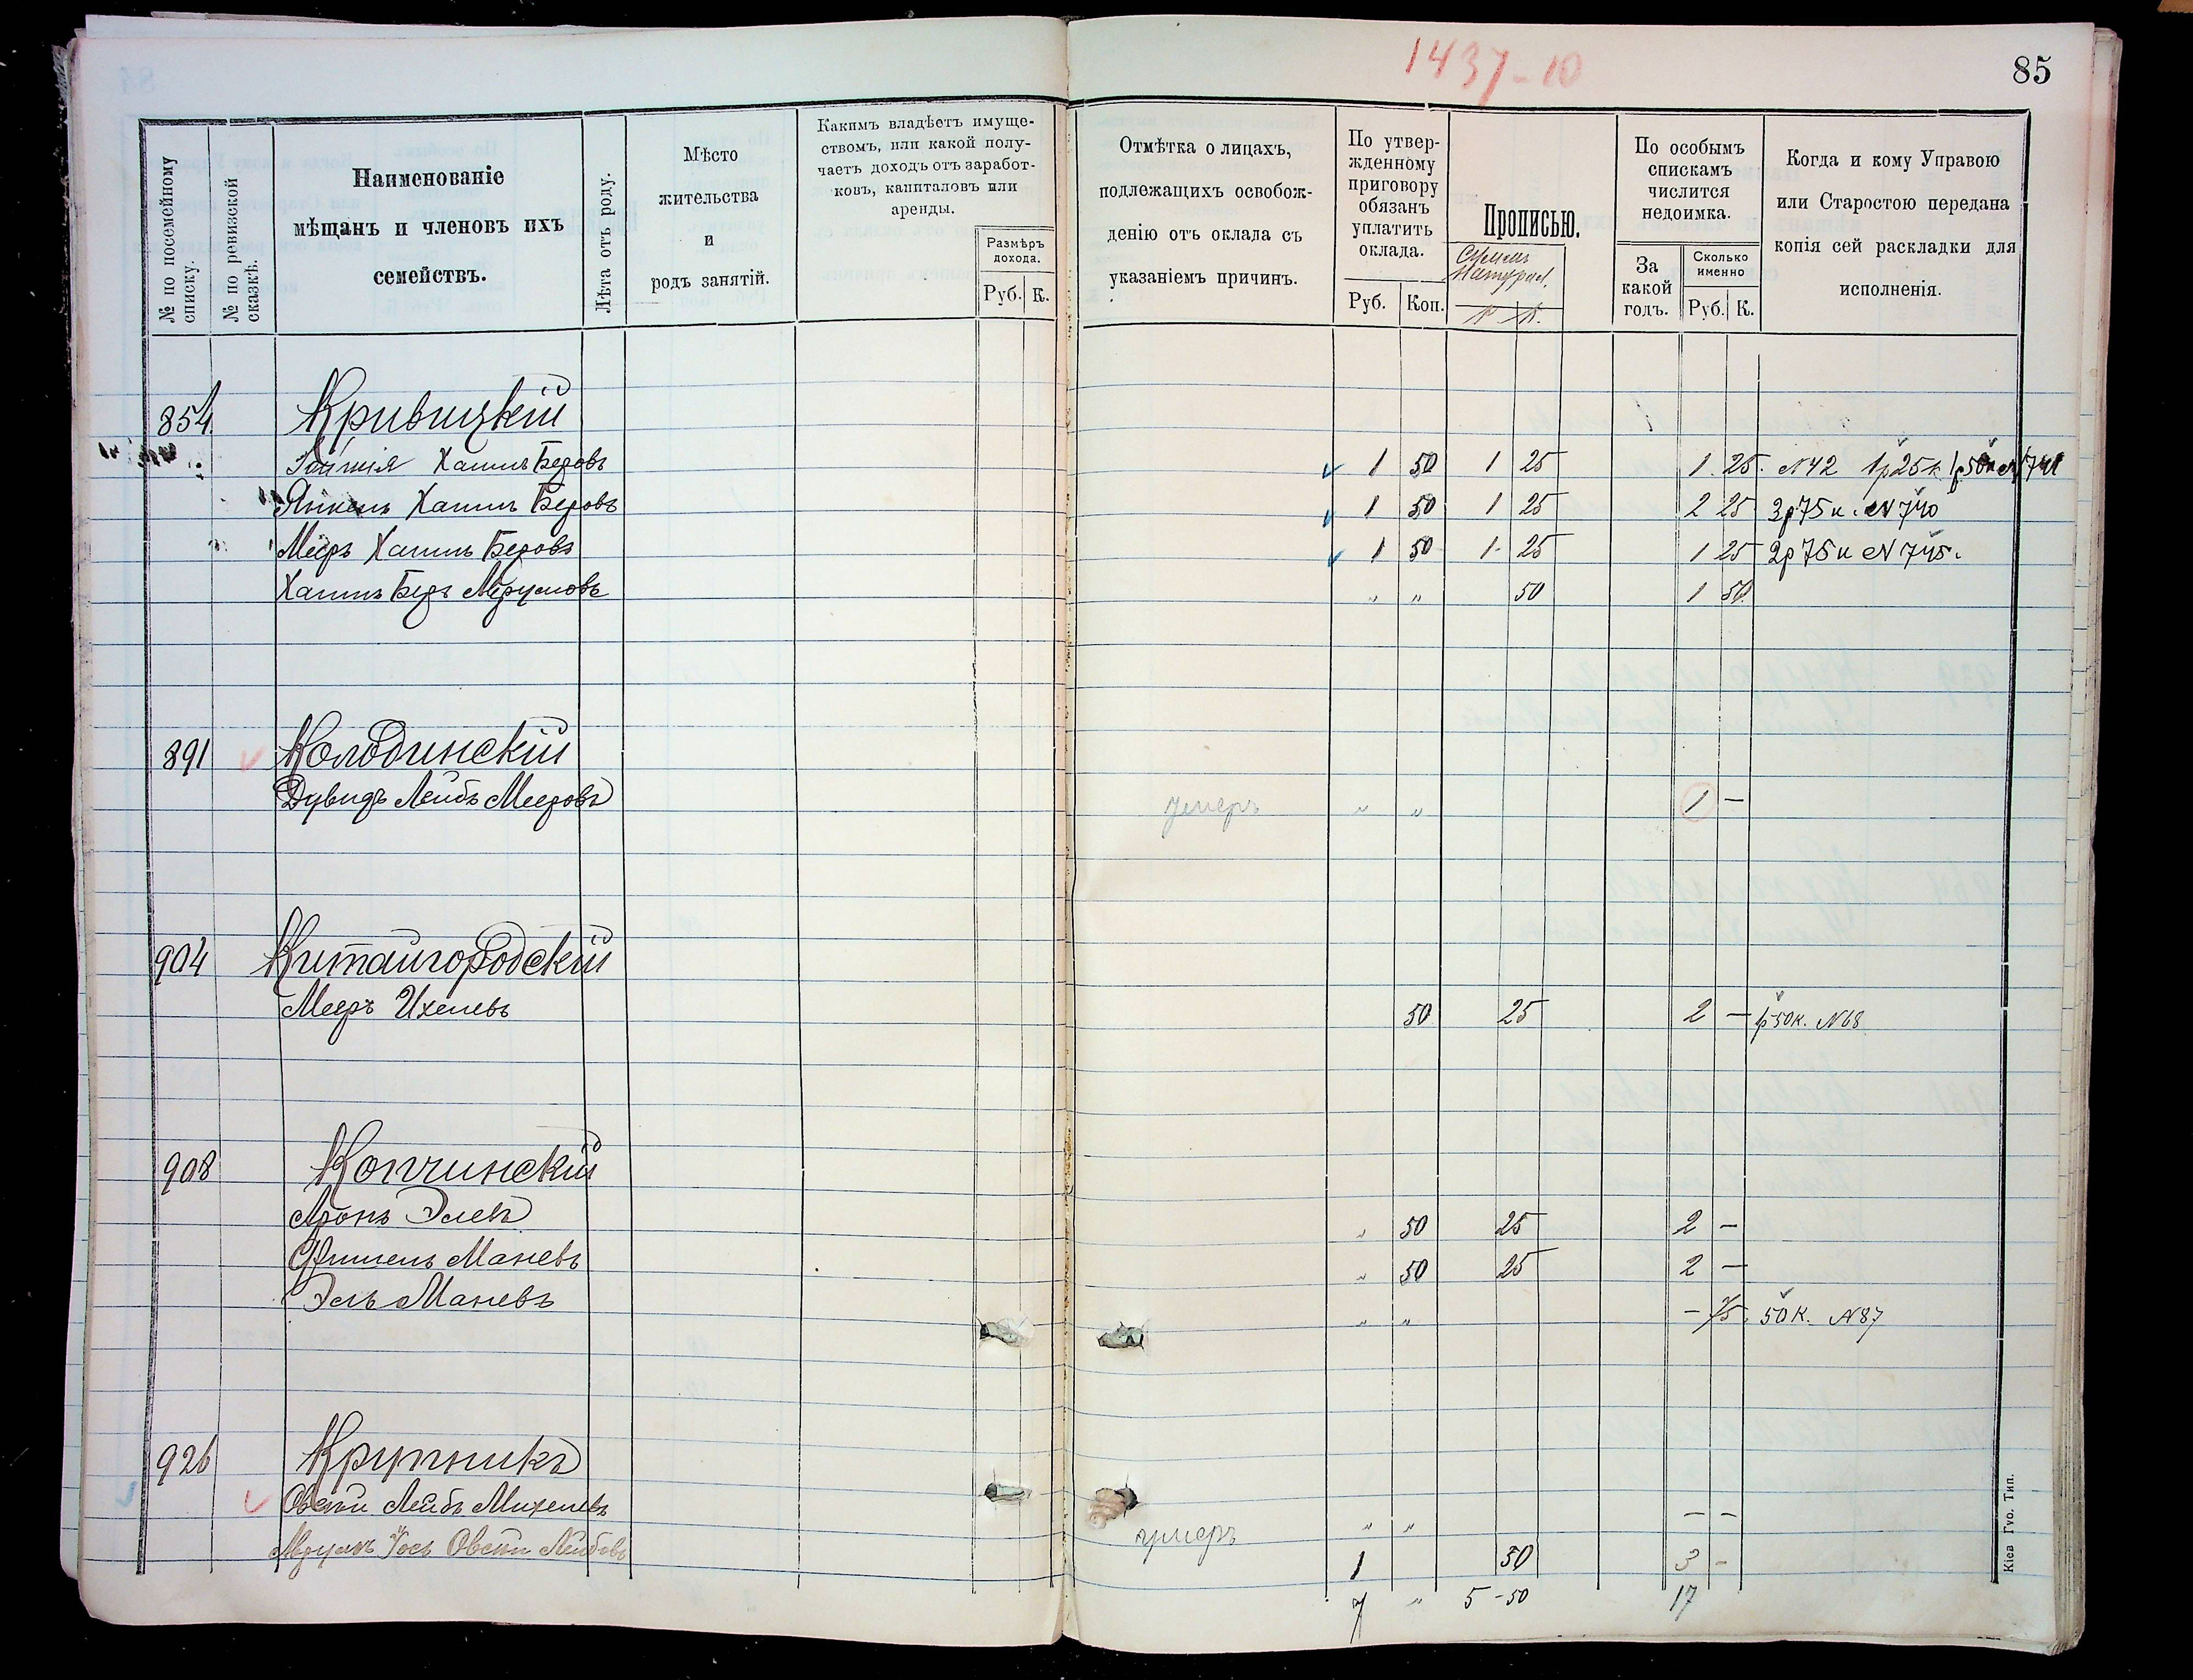 1437-10
85
№ по посемейному списку.
№ по ревизской сказкѣ.
Наименованіе
мѣщанъ и членовъ ихъ
семействъ.
Лѣта отъ роду.
Мѣсто
жительства
и
родъ занятій.
Какимъ владѣетъ имуще-
ствомъ, или какой полу-
чаетъ доходъ отъ заработ-
ковъ, капиталовъ или
аренды.
Размѣръ
дохода.
Руб. К.
Отмѣтка о лицахъ,
подлежащихъ освобож-
денію отъ оклада съ
указаніемъ причинъ.
По утвер-
жденному
приговору
обязанъ
уплатить
оклада.
Руб. Коп.
Прописью.
По особымъ
спискамъ
числится
недоимка.
За
какой
годъ.
Сколько
именно
Руб. К.
Когда и кому Управою
или Старостою передана
копія сей раскладки для
исполненія.
854 Кривицкій
Хаимъ Беровъ 1 50 1 25 1 25 N42 1р25к
Янкель Хаимъ Беровъ 1 50 1 25 2 25 3р75к. N740
Мееръ Хаимъ Беровъ 1 50 1 25 1 25 2р75к N745.
Хаимъ Беръ Мруновъ " " 50 1 50
891 Колодинскій
Дувидъ Лейбъ Мееровъ умеръ " " 1 —
904 Китайгородскій
Мееръ Ихелевъ 50 25 2 — 1р50к. N68
908 Копчинскій
Аронъ Элевъ " 50 25 2 —
Фишель Маневъ " 50 25 2 —
Эль Маневъ " " — 75 50к. N87
926 Крупникъ
Овсей Лейбъ Михелевъ умеръ " " — —
Мрумъ Іосъ Овсей Лейбовъ 1 50 3 -
7 " 5-50 17
Кіев Гуо. Тип.